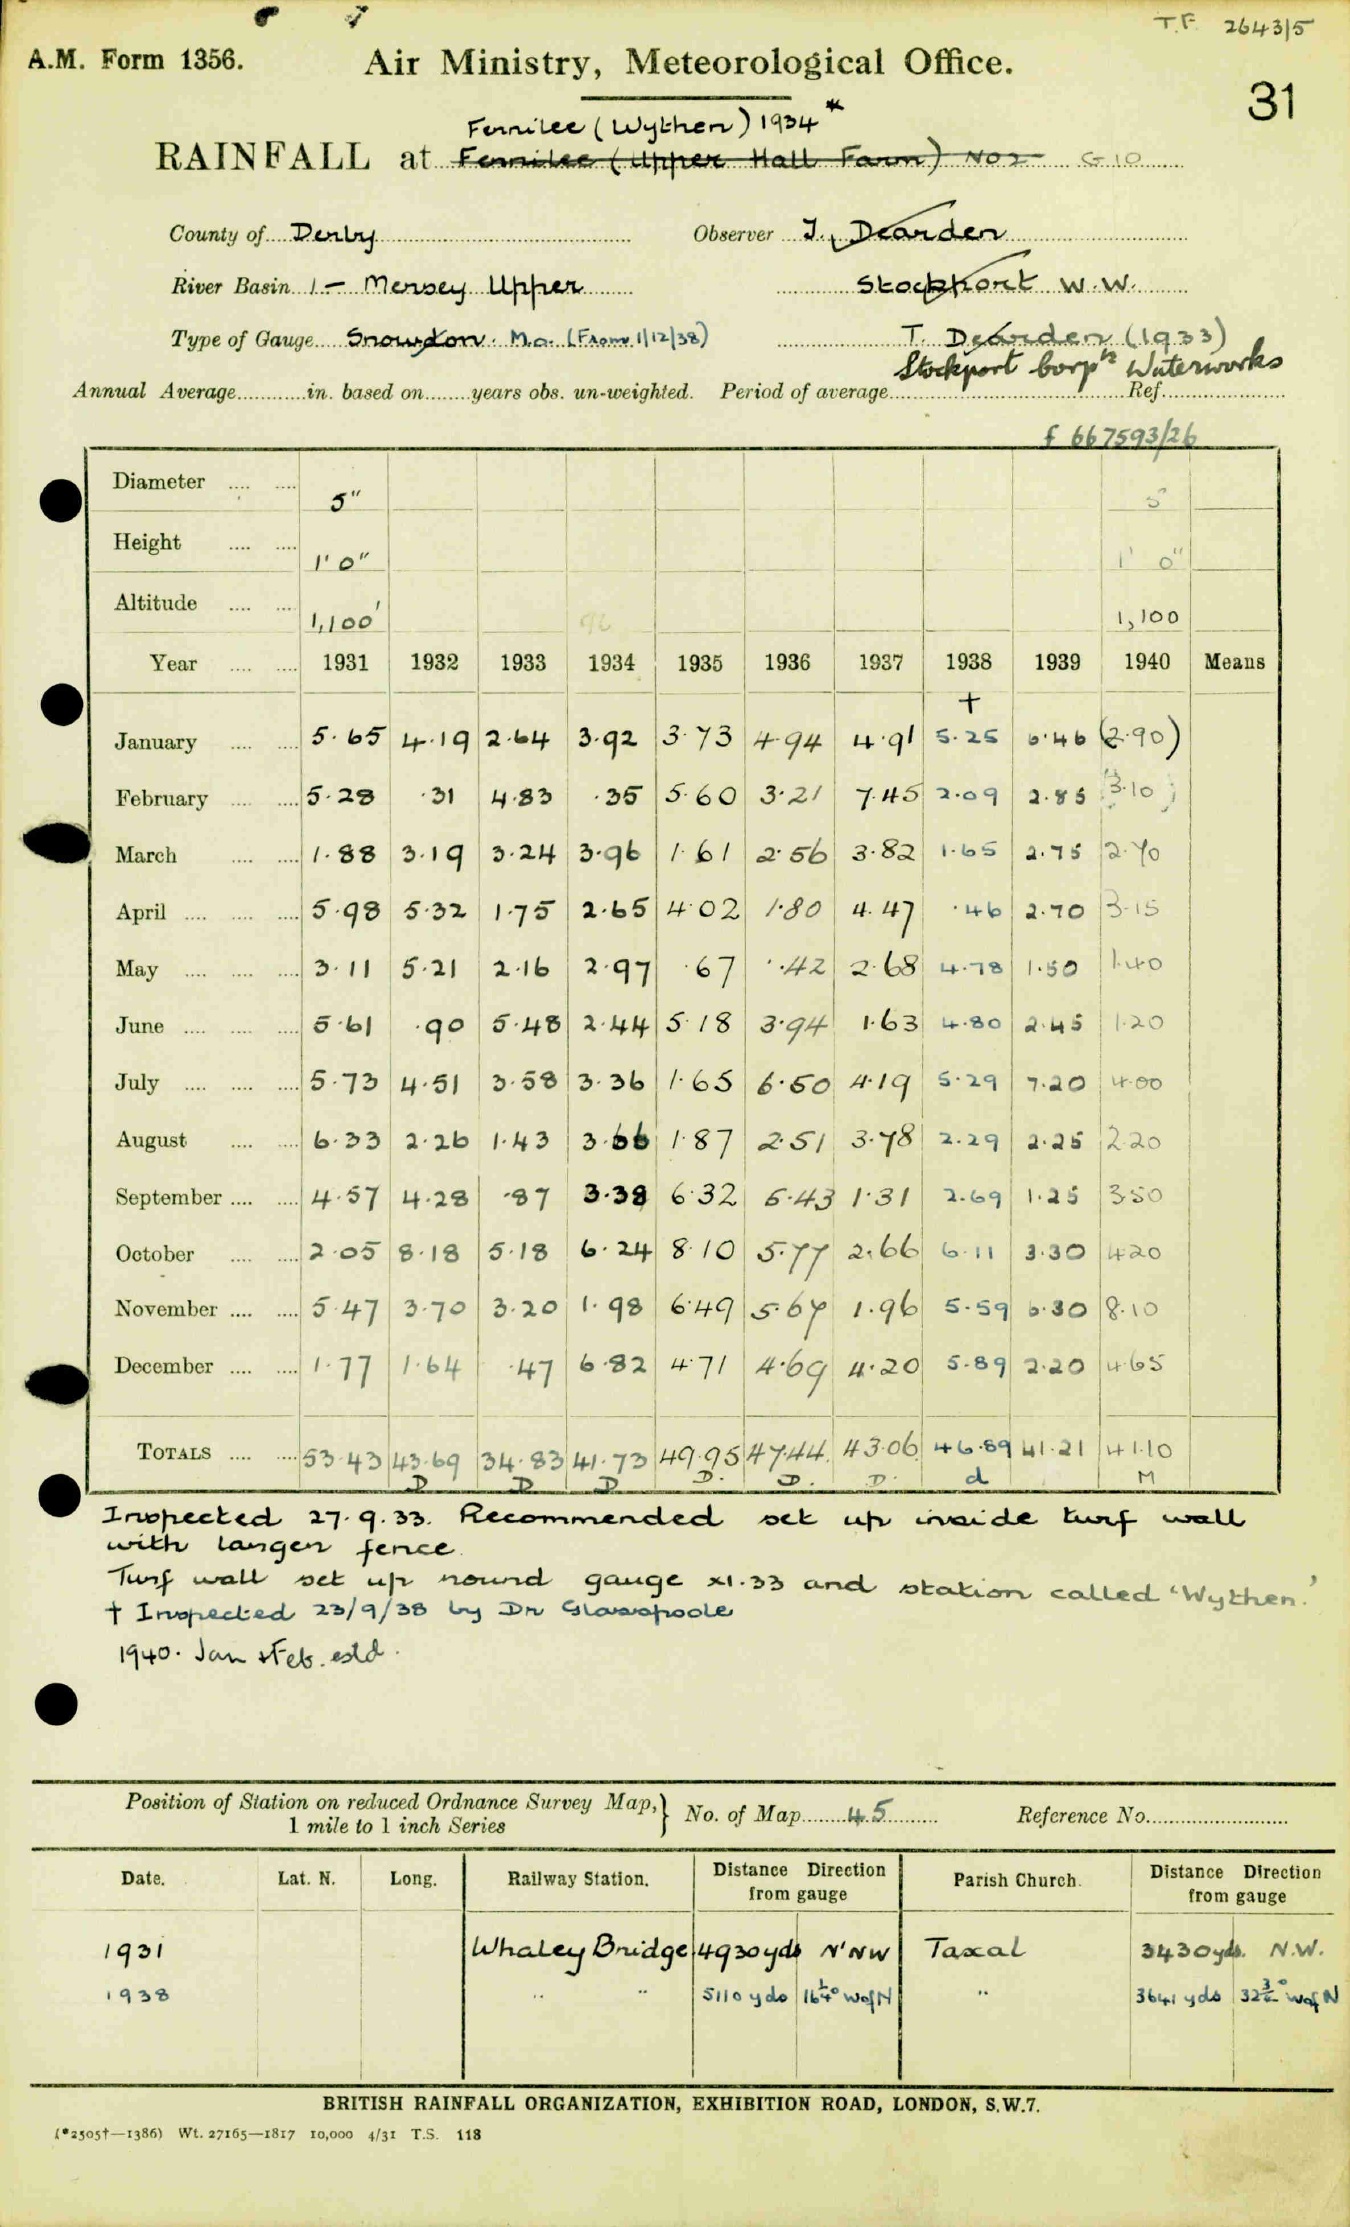 T.F. 2643/5
A.M. Form 1356.
Air Ministry, Meteorological Office.
31
Fernilee (Wythen) 1934*
RAINFALL at Fernilee (Upper Hall Farm) No 2 G 10
County of Derby Observer J. Dearden
River Basin 1 - Mersey Upper Stockport W.W.
Type of Gauge Snowdon. M.O. (From 1/12/38) T. Dearden (1933)
Stockport Corpn Waterworks
Annual Average in. based on years obs. un-weighted. Period of average Ref.
f 667593/26
Diameter 5" 5"
Height 1' 0" 1' 0"
Altitude 1,100' 1,100
Year 1931 1932 1933 1934 1935 1936 1937 1938 1939 1940 Means
†
January 5.65 4.19 2.64 3.92 3.73 4.94 4.91 5.25 6.46 (2.90)
February 5.28 .31 4.83 .35 5.60 3.21 7.45 2.09 2.85 (3.10)
March 1.88 3.19 3.24 3.96 1.61 2.56 3.82 1.65 2.75 2.70
April 5.98 5.32 1.75 2.65 4.02 1.80 4.47 .46 2.70 3.15
May 3.11 5.21 2.16 2.97 .67 .42 2.68 4.78 1.50 1.40
June 5.61 .90 5.48 2.44 5.18 3.94 1.63 4.80 2.45 1.20
July 5.73 4.51 3.58 3.36 1.65 6.50 4.19 5.29 7.20 4.00
August 6.33 2.26 1.43 3.66 1.87 2.51 3.78 2.29 2.25 2.20
September 4.57 4.28 .87 3.38 6.32 5.43 1.31 2.69 1.25 3.50
October 2.05 8.18 5.18 6.24 8.10 5.77 2.66 6.11 3.30 4.20
November 5.47 3.70 3.20 1.98 6.49 5.67 1.96 5.59 6.30 8.10
December 1.77 1.64 .47 6.82 4.71 4.69 4.20 5.89 2.20 4.65
TOTALS 53.43 43.69 34.83 41.73 49.95 47.44 43.06 46.89 41.21 41.10
D D D D. D. D. d M
Inspected 27.9.33. Recommended set up inside turf wall
with larger fence.
Turf wall set up round gauge x1.33 and station called 'Wythen.'
† Inspected 23/9/38 by Dr Glasspoole
1940. Jan & Feb. estd.
Position of Station on reduced Ordnance Survey Map,
1 mile to 1 inch Series
No. of Map 45 Reference No.
Date. Lat. N. Long. Railway Station. Distance Direction from gauge Parish Church. Distance Direction from gauge
1931 Whaley Bridge 4930 yds N'NW Taxal 3430 yds. N.W.
1938 " " 5110 yds 16¼° W of N " 3641 yds 32¾° W of N
BRITISH RAINFALL ORGANIZATION, EXHIBITION ROAD, LONDON, S.W.7.
(*2505†—1386) Wt. 27165—1817 10,000 4/31 T.S. 118